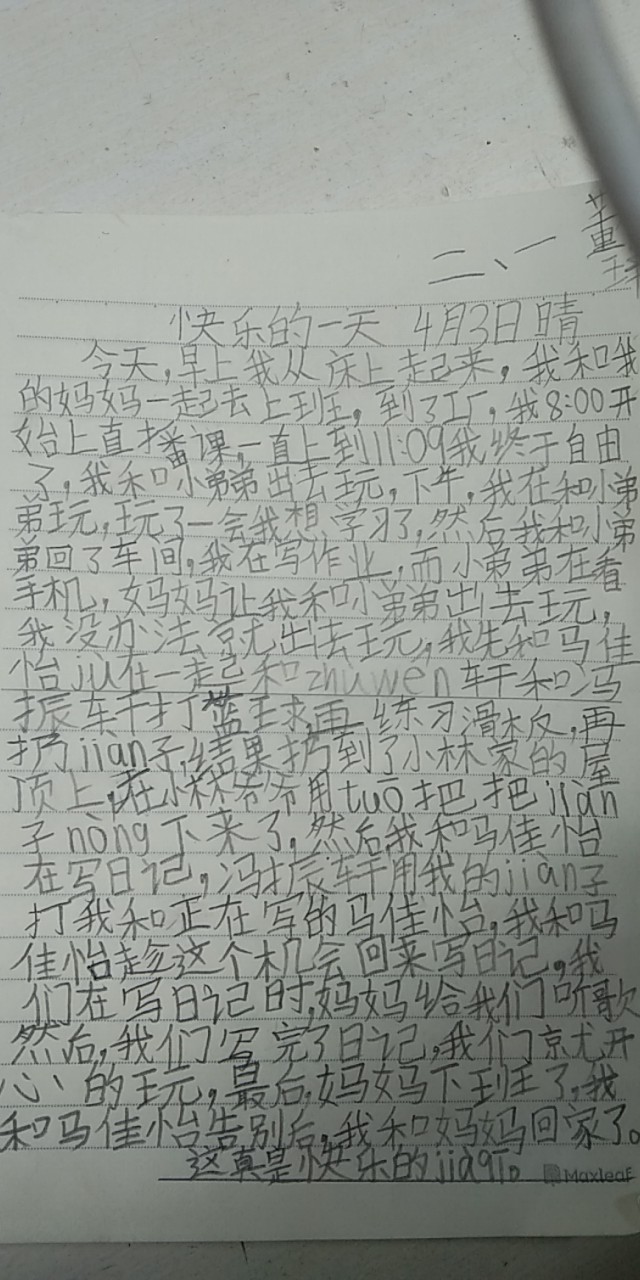 二、一 董
快乐的一天 4月3日 晴
今天,早上我从床上起来,我和我
的妈妈一起去上班,到了工厂,我8:00开
始上直播课,一直上到11:09我终于自由
了,我和小弟弟出去玩,下午,我在和小弟
弟玩,玩了一会我想学习了,然后我和小弟
弟回了车间,我在写作业,而小弟弟在看
手机,妈妈让我和小弟弟出去玩,
我没办法就出去玩,我先和马佳
怡jiu在一起和zhuwen轩和冯
振轩打篮球,再练习滑板,再
扔jiàn子,结果扔到了小林家的屋
顶上,在小林爷爷用tuō把把jiàn
子nòng下来了,然后我和马佳怡
在写日记,冯振轩用我的jiàn子
打我和正在写的马佳怡,我和马
佳怡趁这个机会回来写日记,我
们在写日记时,妈妈给我们听歌
然后,我们写完了日记,我们就开
心的玩,最后,妈妈下班了,我
和马佳怡告别后,我和妈妈回家了。
这真是快乐的jiàqī。
Maxleaf